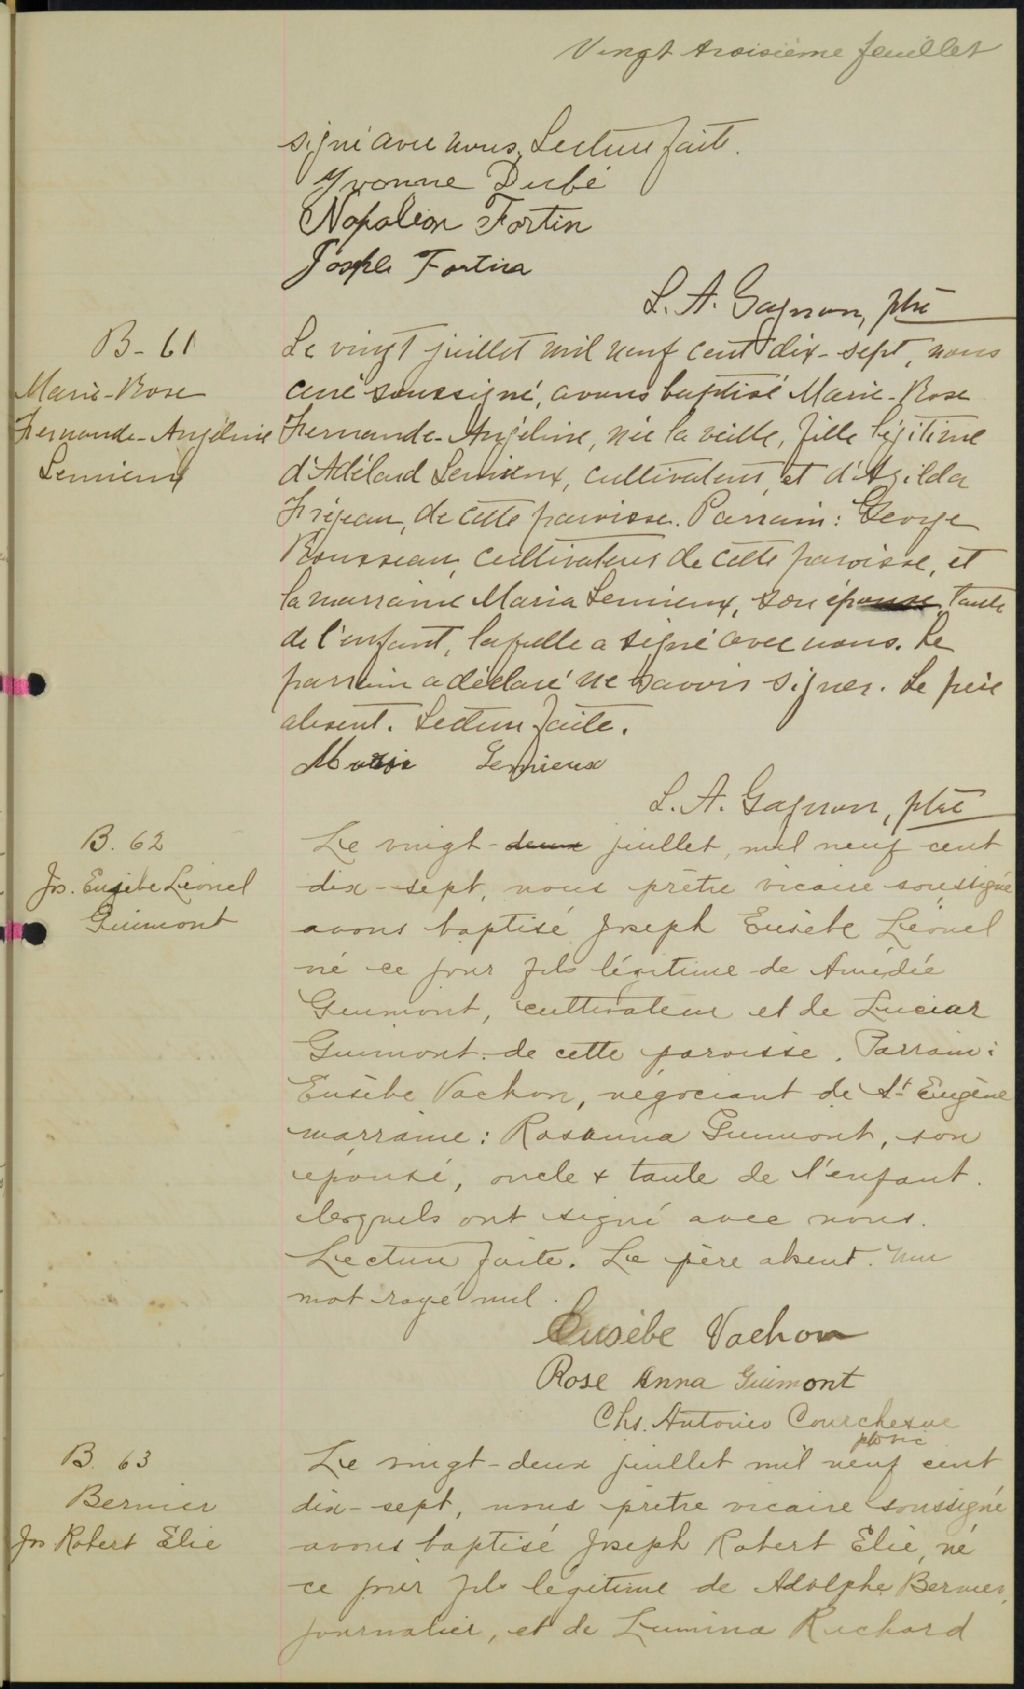 Vingt troisième feuillet
signé avec nous. Lecture faite.
Yvonne Dubé
Napoléon Fortin
Joseph Fortin
L. A. Gagnon, ptre
B- 61
Marie-Rose
Fernande-Angéline
Lemieux
Le vingt juillet mil neuf cent dix-sept, nous
curé soussigné, avons baptisé Marie-Rose
Fernande-Angéline, née la veille, fille légitime
d'Adélard Lemieux, cultivateur, et d'Azilda
Fréjeau, de cette paroisse. Parrain: George
Rousseau, cultivateur de cette paroisse, et
la marraine Maria Lemieux, son épouse, tante
de l'enfant, laquelle a signé avec nous. Le
parrain a déclaré ne savoir signer. Le père
absent. Lecture faite.
Maria Lemieux
L. A. Gagnon, ptre
B. 62
Jos. Eusèbe Léonel
Guimont
Le vingt-deux juillet, mil neuf cent
dix-sept, nous prêtre vicaire soussigné
avons baptisé Joseph Eusèbe Léonel
né ce jour fils légitime de Amédée
Guimont, cultivateur et de Luciar
Guimont de cette paroisse. Parrain:
Eusèbe Vachon, négociant de St Eugène
marraine: Rosanna Guimont, son
épouse, oncle & tante de l'enfant.
lesquels ont signé avec nous.
Lecture faite. Le père absent. Un
mot rayé nul.
Eusèbe Vachon
Rose Anna Guimont
Chs. Antonio Courchesne
ptre vic
B. 63
Bernier
Jos Robert Élie
Le vingt-deux juillet mil neuf cent
dix-sept, nous prêtre vicaire soussigné
avons baptisé Joseph Robert Élie, né
ce jour fils légitime de Adolphe Bernier,
journalier, et de Lumina Richard